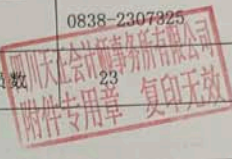 0838-2307325
员数 23
四川天正会计师事务所有限公司
附件专用章 复印无效